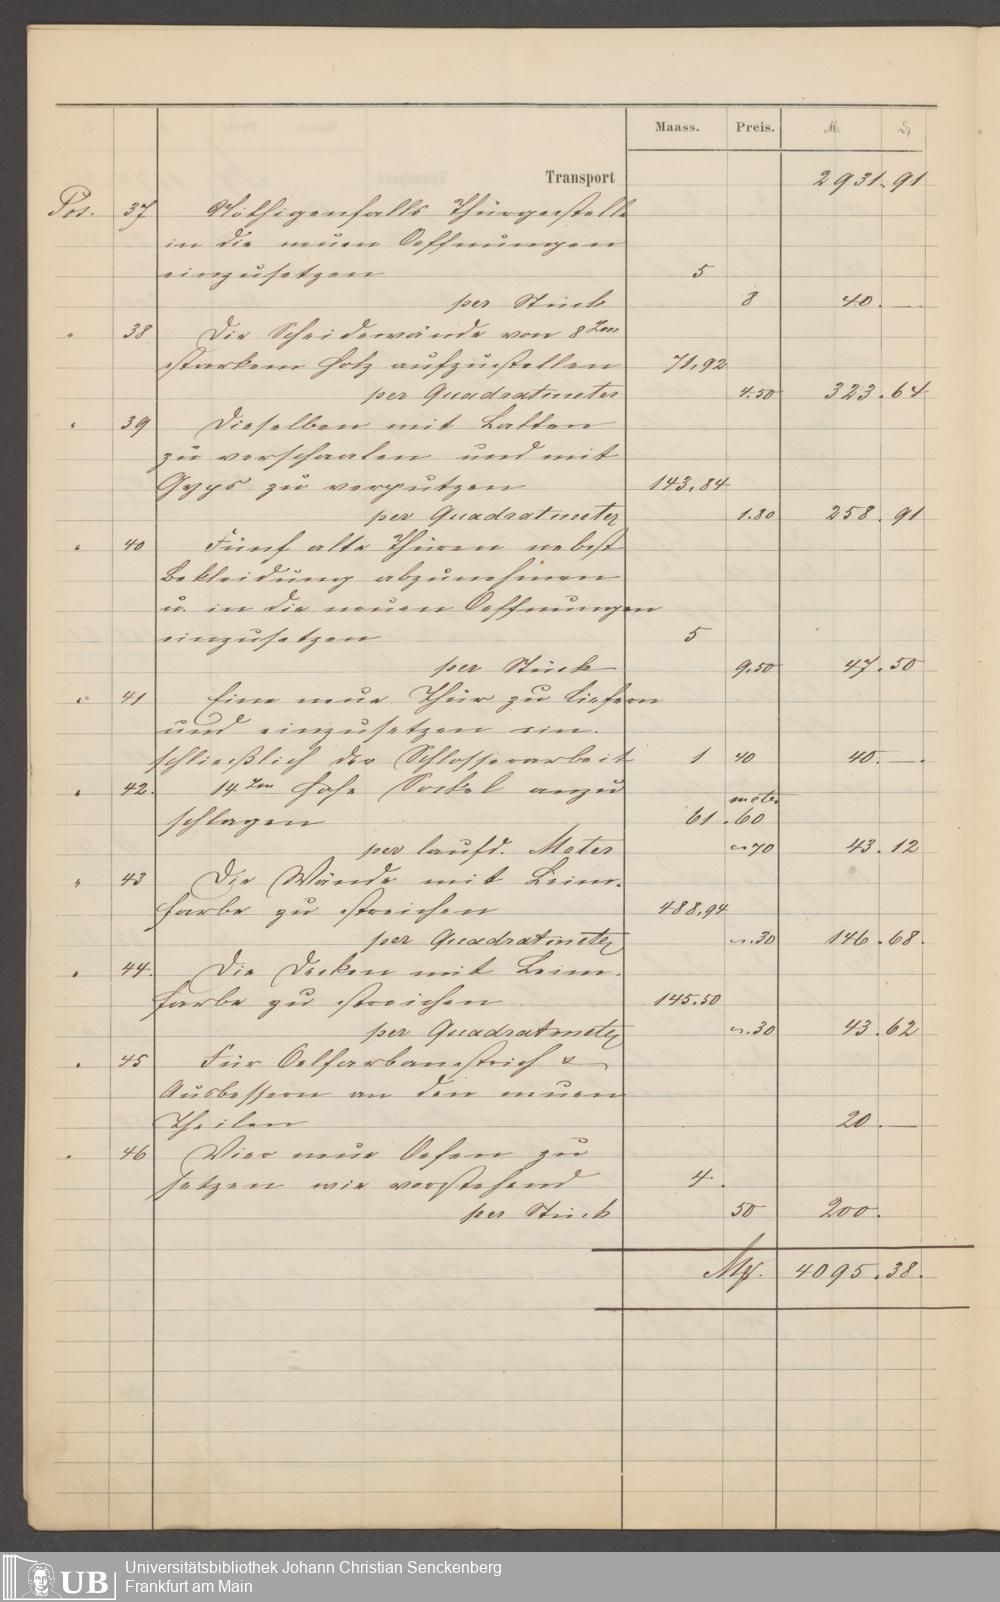 Maass. Preis. M. ₰
Transport 2931.91
Pos. 37 Nöthigenfalls Thürgestelle
in die neuen Oeffnungen
einzusetzen 5
per Stück 8 40. —
" 38 Die Scheidewände von 8 Zm
starkem Holz aufzustellen 71,92
per Quadratmeter 4.50 323.64
" 39 Dieselben mit Latten
zu verschaalen und mit
Gyps zu verputzen 143,84
per Quadratmeter 1.80 258.91
" 40 Fünf alte Thüren nebst
Bekleidung abzunehmen
u. in die neuen Oeffnungen
einzusetzen 5
per Stück 9.50 47.50
" 41 Eine neue Thür zu liefern
und einzusetzen ein-
schließlich der Schlosserarbeit 1 40 40. —
" 42. 14 Zm hohe Sockel anzu
meter
schlagen 61.60
per laufd. Meter ~70 43.12
" 43 Die Wände mit Leim-
farbe zu streichen 488,94
per Quadratmeter ~.30 146.68.
" 44. Die Decken mit Leim-
farbe zu streichen 145.50
per Quadratmeter ~.30 43.62
" 45 Für Oelfarbanstrich &
Ausbessern an den neuen
Theilen 20. —
" 46 Vier neue Oefen zu
setzen wie vorstehend 4.
per Stück 50 200.
Mk. 4095.38.
UB
Universitätsbibliothek Johann Christian Senckenberg
Frankfurt am Main